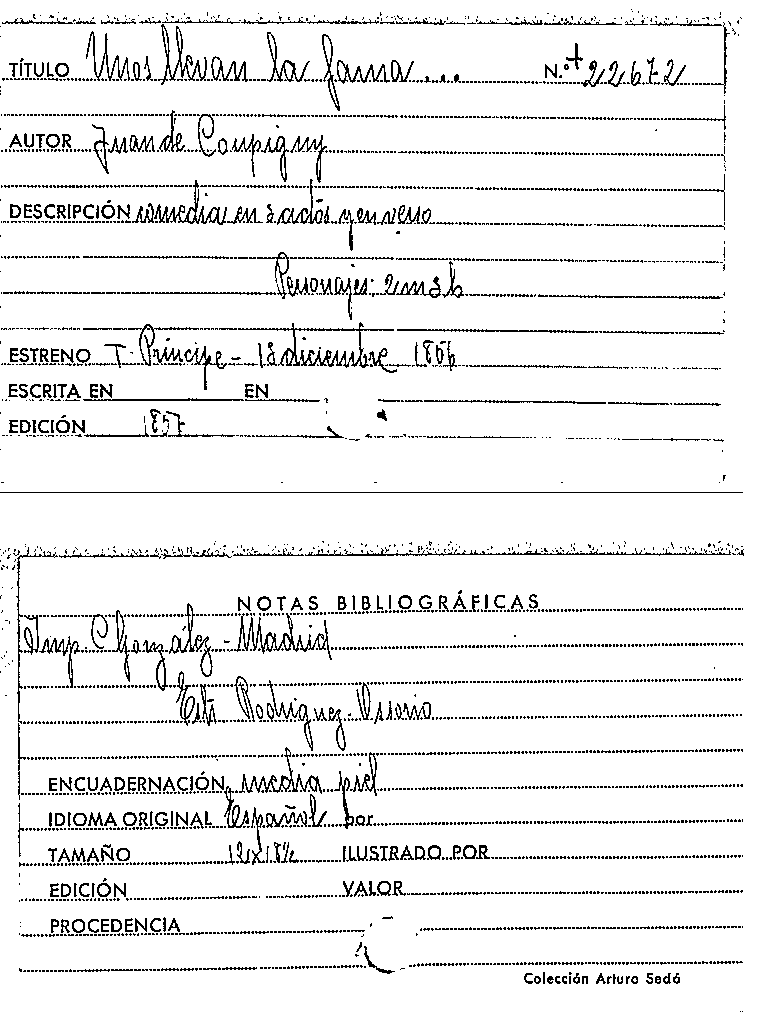 TÍTULO Unos llevan la fama... N.º + 22672
AUTOR Juan de Coupigny
DESCRIPCIÓN comedia en 3 actos y en verso
Personajes: 2m 3h
ESTRENO T. Príncipe - 18 diciembre 1856
ESCRITA EN EN
EDICIÓN 1857
NOTAS BIBLIOGRÁFICAS
Imp C González - Madrid
Rodriguez-Ossorio
ENCUADERNACIÓN media piel
IDIOMA ORIGINAL Español por
TAMAÑO 12x18½ ILUSTRADO POR
EDICIÓN VALOR
PROCEDENCIA
Colección Arturo Sedó